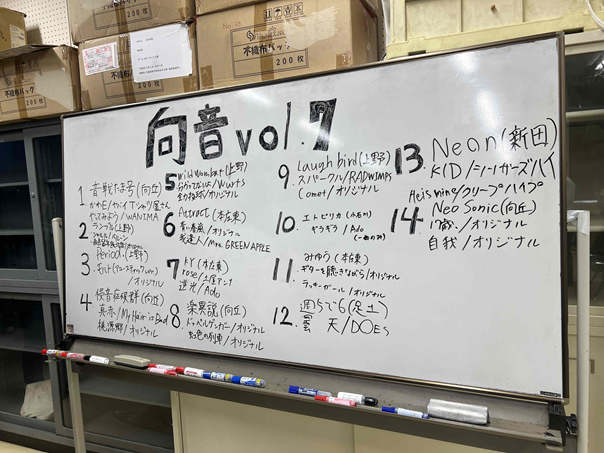 不織布バッグ
200枚
不織布バッグ
200枚
不織布バッグ
200枚
向音vol.7
1 音戦たま号(向丘)
かわE/ヤバイTシャツ屋さん
やってみよう/WANIMA
2 ランブル(上野)
3 Period.(上野)
/オリジナル
4 侵音症候群(向丘)
真赤/My Hair is Bad
桃源郷/オリジナル
5 Wild Wombat(上野)
分かってないよ/Wurts
/オリジナル
6 Attract(本左東)
青い春風/オリジナル
我逢人/Mrs. GREEN APPLE
7 KY(本左東)
rose/土屋アンナ
逆光/Ado
8 楽異説(向丘)
ドッペルゲンガー/オリジナル
虹色の列車/オリジナル
9 Laugh bird(上野)
スパークル/RADWIMPS
Comet/オリジナル
10 エトピリカ(小石川)
ギラギラ/Ado
11 みゆう(本左東)
ギターを聴きながら/オリジナル
ラッキーガール/オリジナル
12. 週5で6(足立)
曇天/DOES
13 Neon(新田)
KID/ハルカミライ
He is mine/クリープハイプ
14 Neo Sonic(向丘)
17歳/オリジナル
自我/オリジナル